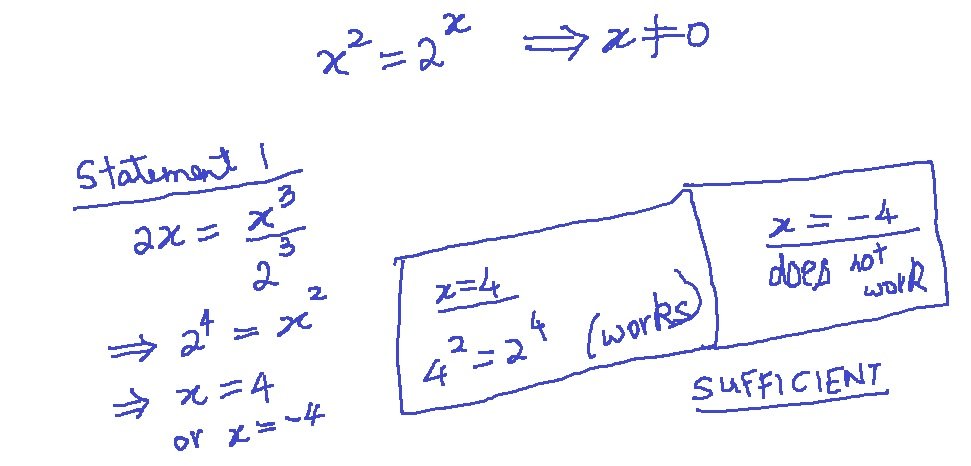 x² = 2ˣ ⟹ x ≠ 0
Statement 1
2x = x³/2³
⟹ 2⁴ = x²
⟹ x = 4
or x = -4
x = 4
4² = 2⁴ (works)
x = -4
does not
work
SUFFICIENT